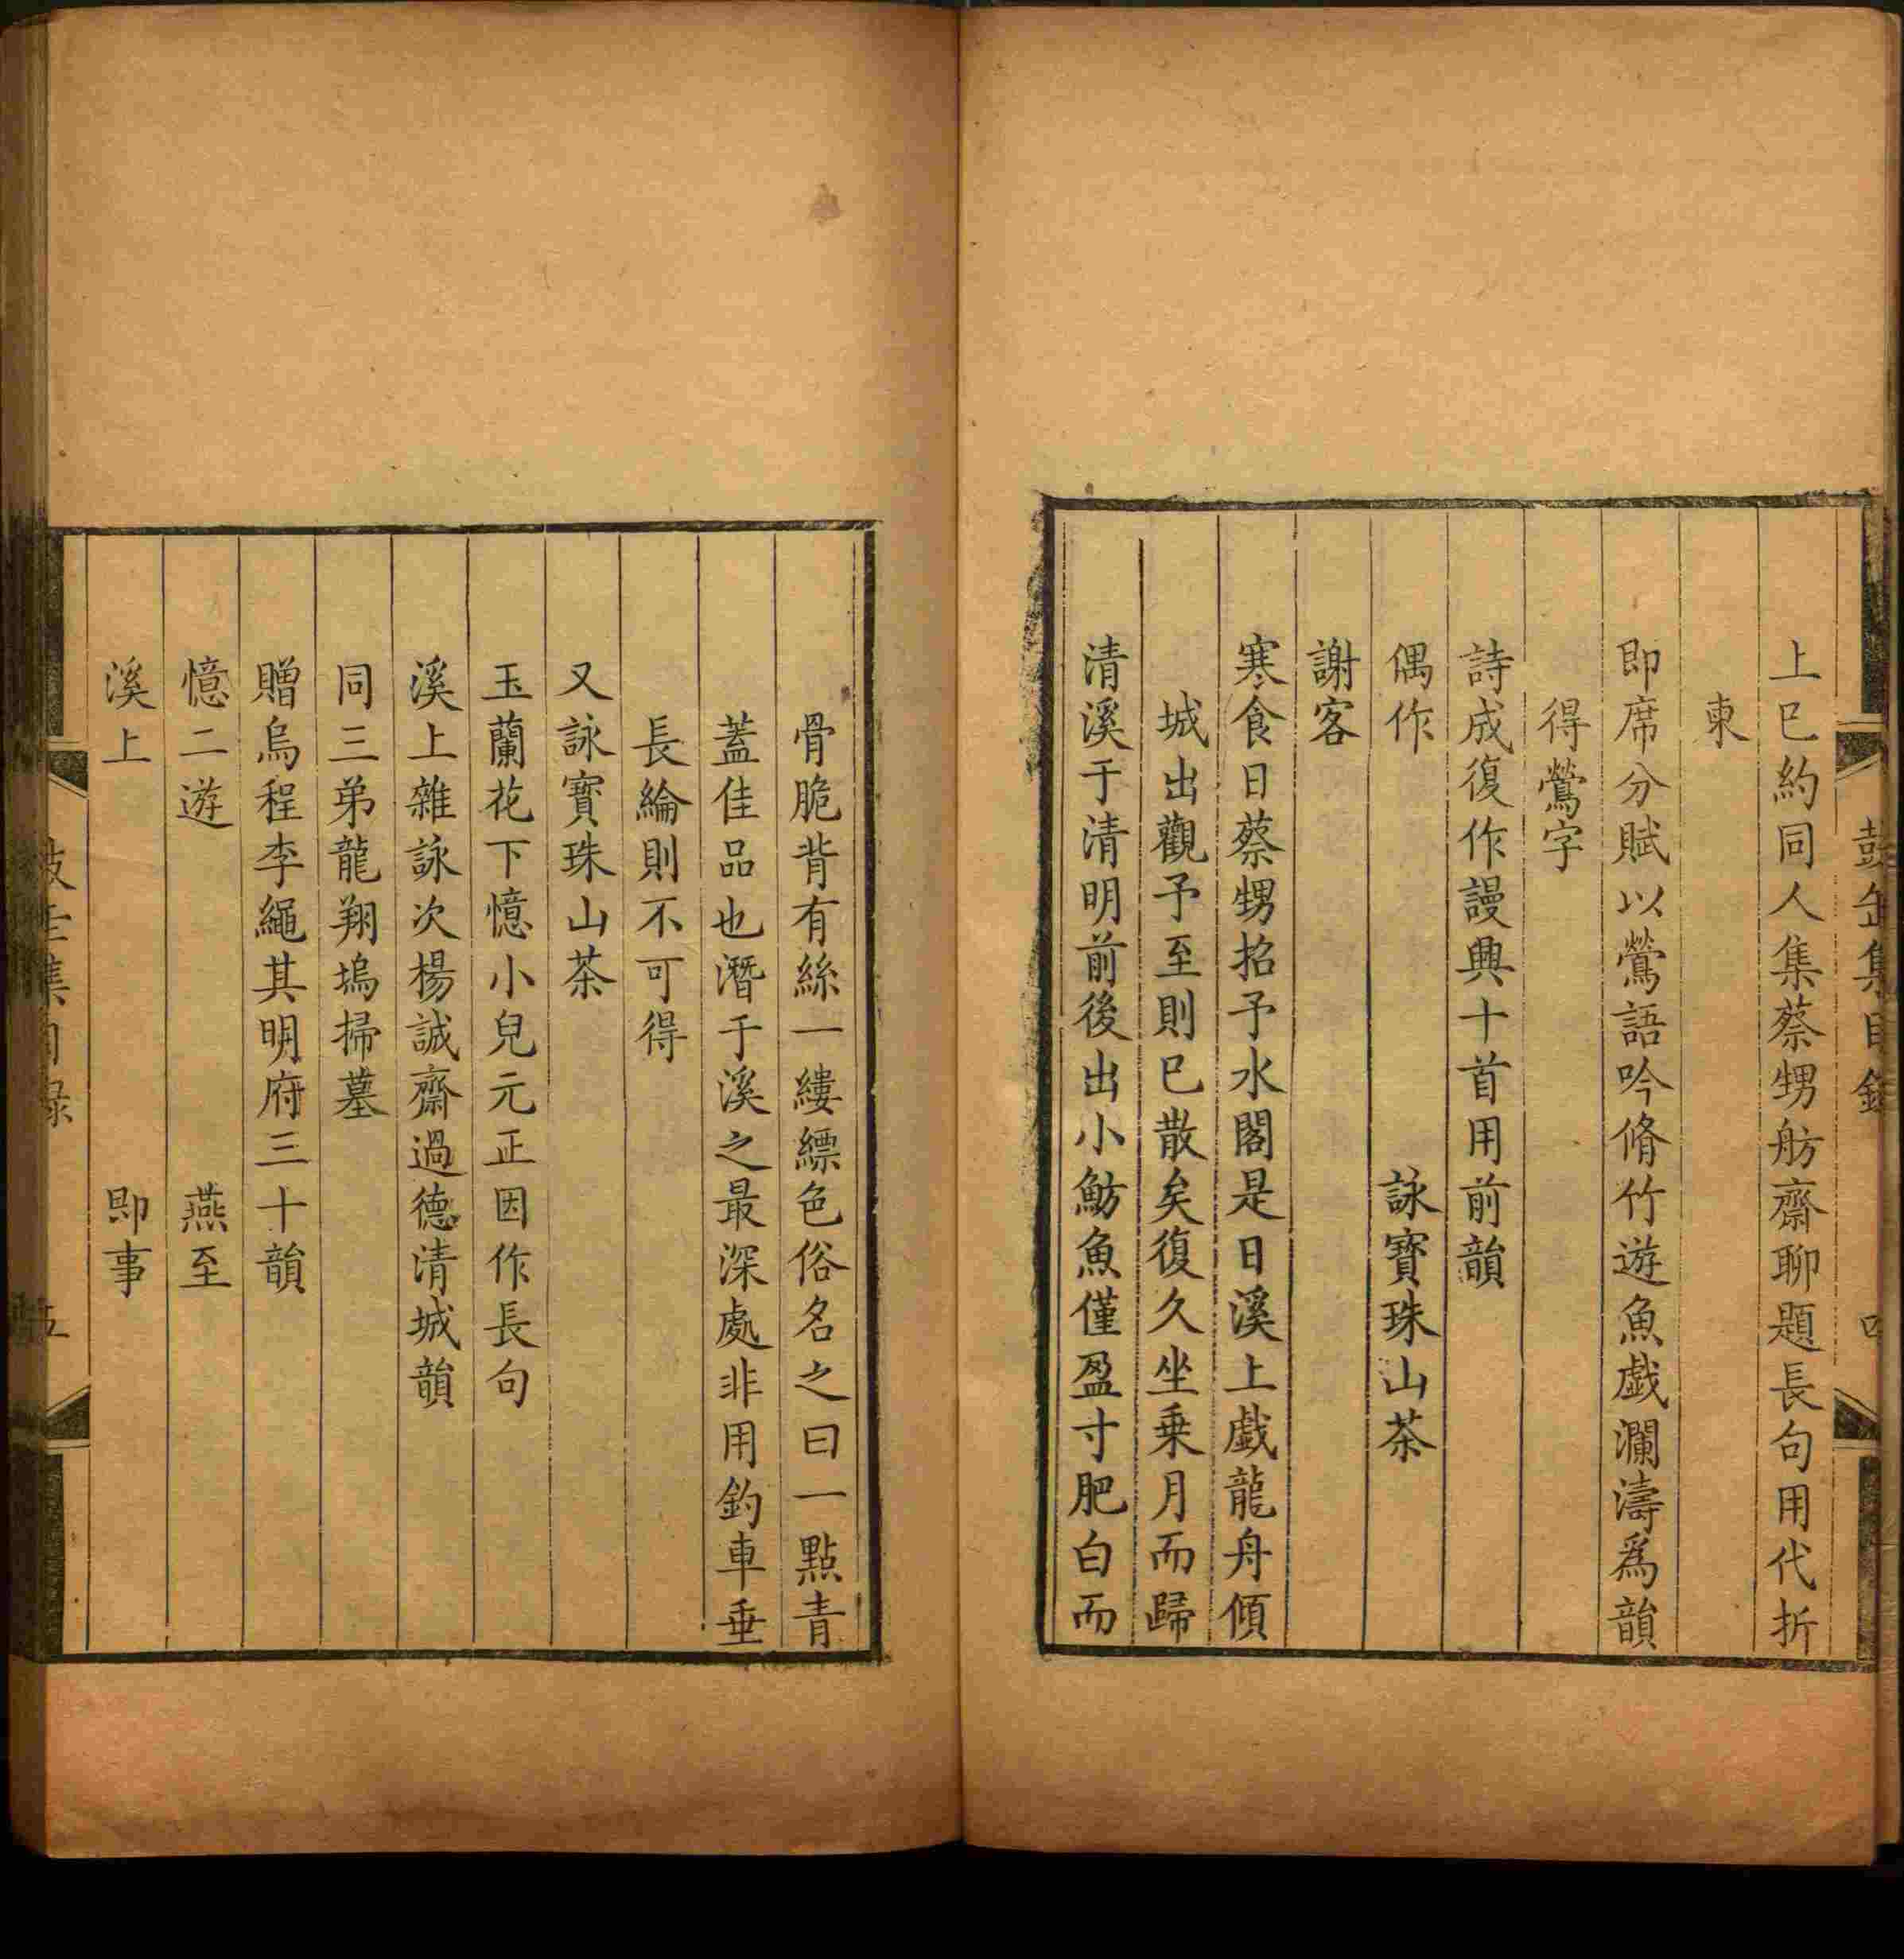 上巳約同人集蔡甥舫齋聊題長句用代折
柬
即席分賦以鶯語吟脩竹遊魚戲瀾濤爲韻
得鶯字
詩成復作謾興十首用前韻
偶作 詠寶珠山茶
謝客
寒食日蔡甥招予水閣是日溪上戲龍舟傾
城出觀予至則巳散矣復久坐乗月而歸
清溪于清明前後出小魴魚僅盈寸肥白而
骨脆背有絲一縷縹色俗名之曰一點青
蓋佳品也潛于溪之最深處非用釣車垂
長綸則不可得
又詠寶珠山茶
玉蘭花下憶小兒元正因作長句
溪上雜詠次楊誠齋過德清城韻
同三弟龍翔塢掃墓
贈烏程李繩其明府三十韻
憶二遊 燕至
溪上 即事